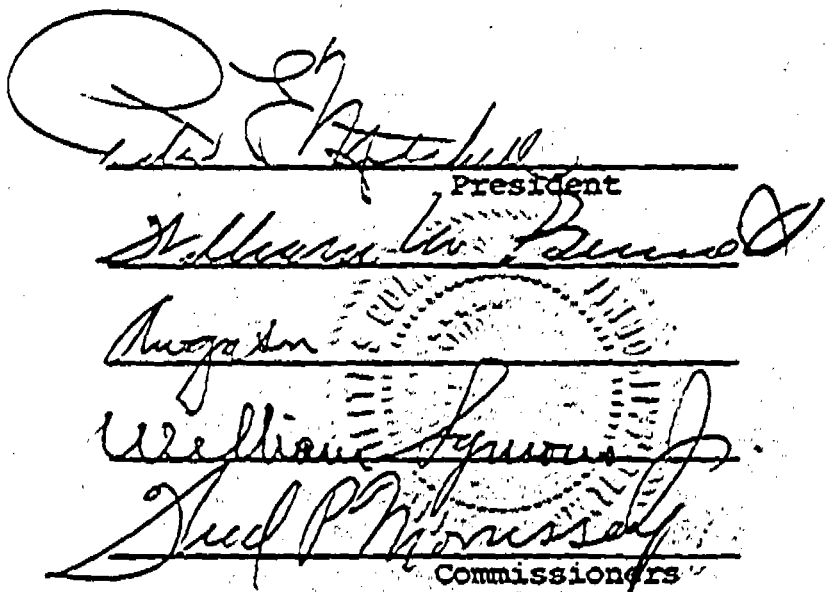 E Mitchell
President
William M. Bennett
William Symons Jr.
Fred P. Morrissey
Commissioners